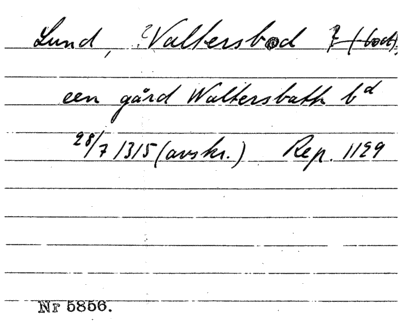 Lund, ?Valbersbod ? (bod).
een gård Waltersbath bd
28/7 1315 (avskr.) Rep. 1129
Nr 5856.